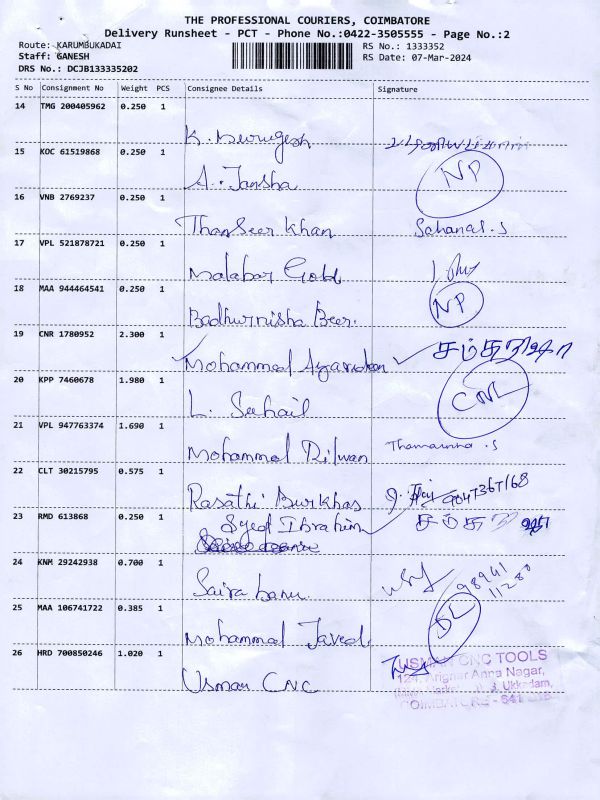 THE PROFESSIONAL COURIERS, COIMBATORE
Delivery Runsheet - PCT - Phone No.:0422-3505555 - Page No.:2
Route: KARUMBUKADAI RS No.: 1333352
Staff: GANESH RS Date: 07-Mar-2024
DRS No.: DCJB133335202
S No Consignment No Weight PCS Consignee Details Signature
14 TMG 200405962 0.250 1
K. Murugesh
15 KOC 61519868 0.250 1
A. Jansha NP
16 VNB 2769237 0.250 1
ThanSeer Khan Sahanas.S
17 VPL 521878721 0.250 1
Malabar Gold
18 MAA 944464541 0.250 1
Badhurnisha Beer. NP
19 CNR 1780952 2.300 1
Mohammad
20 KPP 7460678 1.980 1
L. Suhail CNL
21 VPL 947763374 1.690 1
Mohammad Rilwan
22 CLT 30215795 0.575 1
Rasathi Burkhas
23 RMD 613868 0.250 1
Syed Ibrahim
24 KNM 29242938 0.700 1
Saira banu.
25 MAA 106741722 0.385 1
Mohammad Javed DL
26 HRD 700850246 1.020 1
Usman CNC
USMAN CNC TOOLS
Arignar Anna Nagar,
Ukkadam,
COIMBATORE - 641